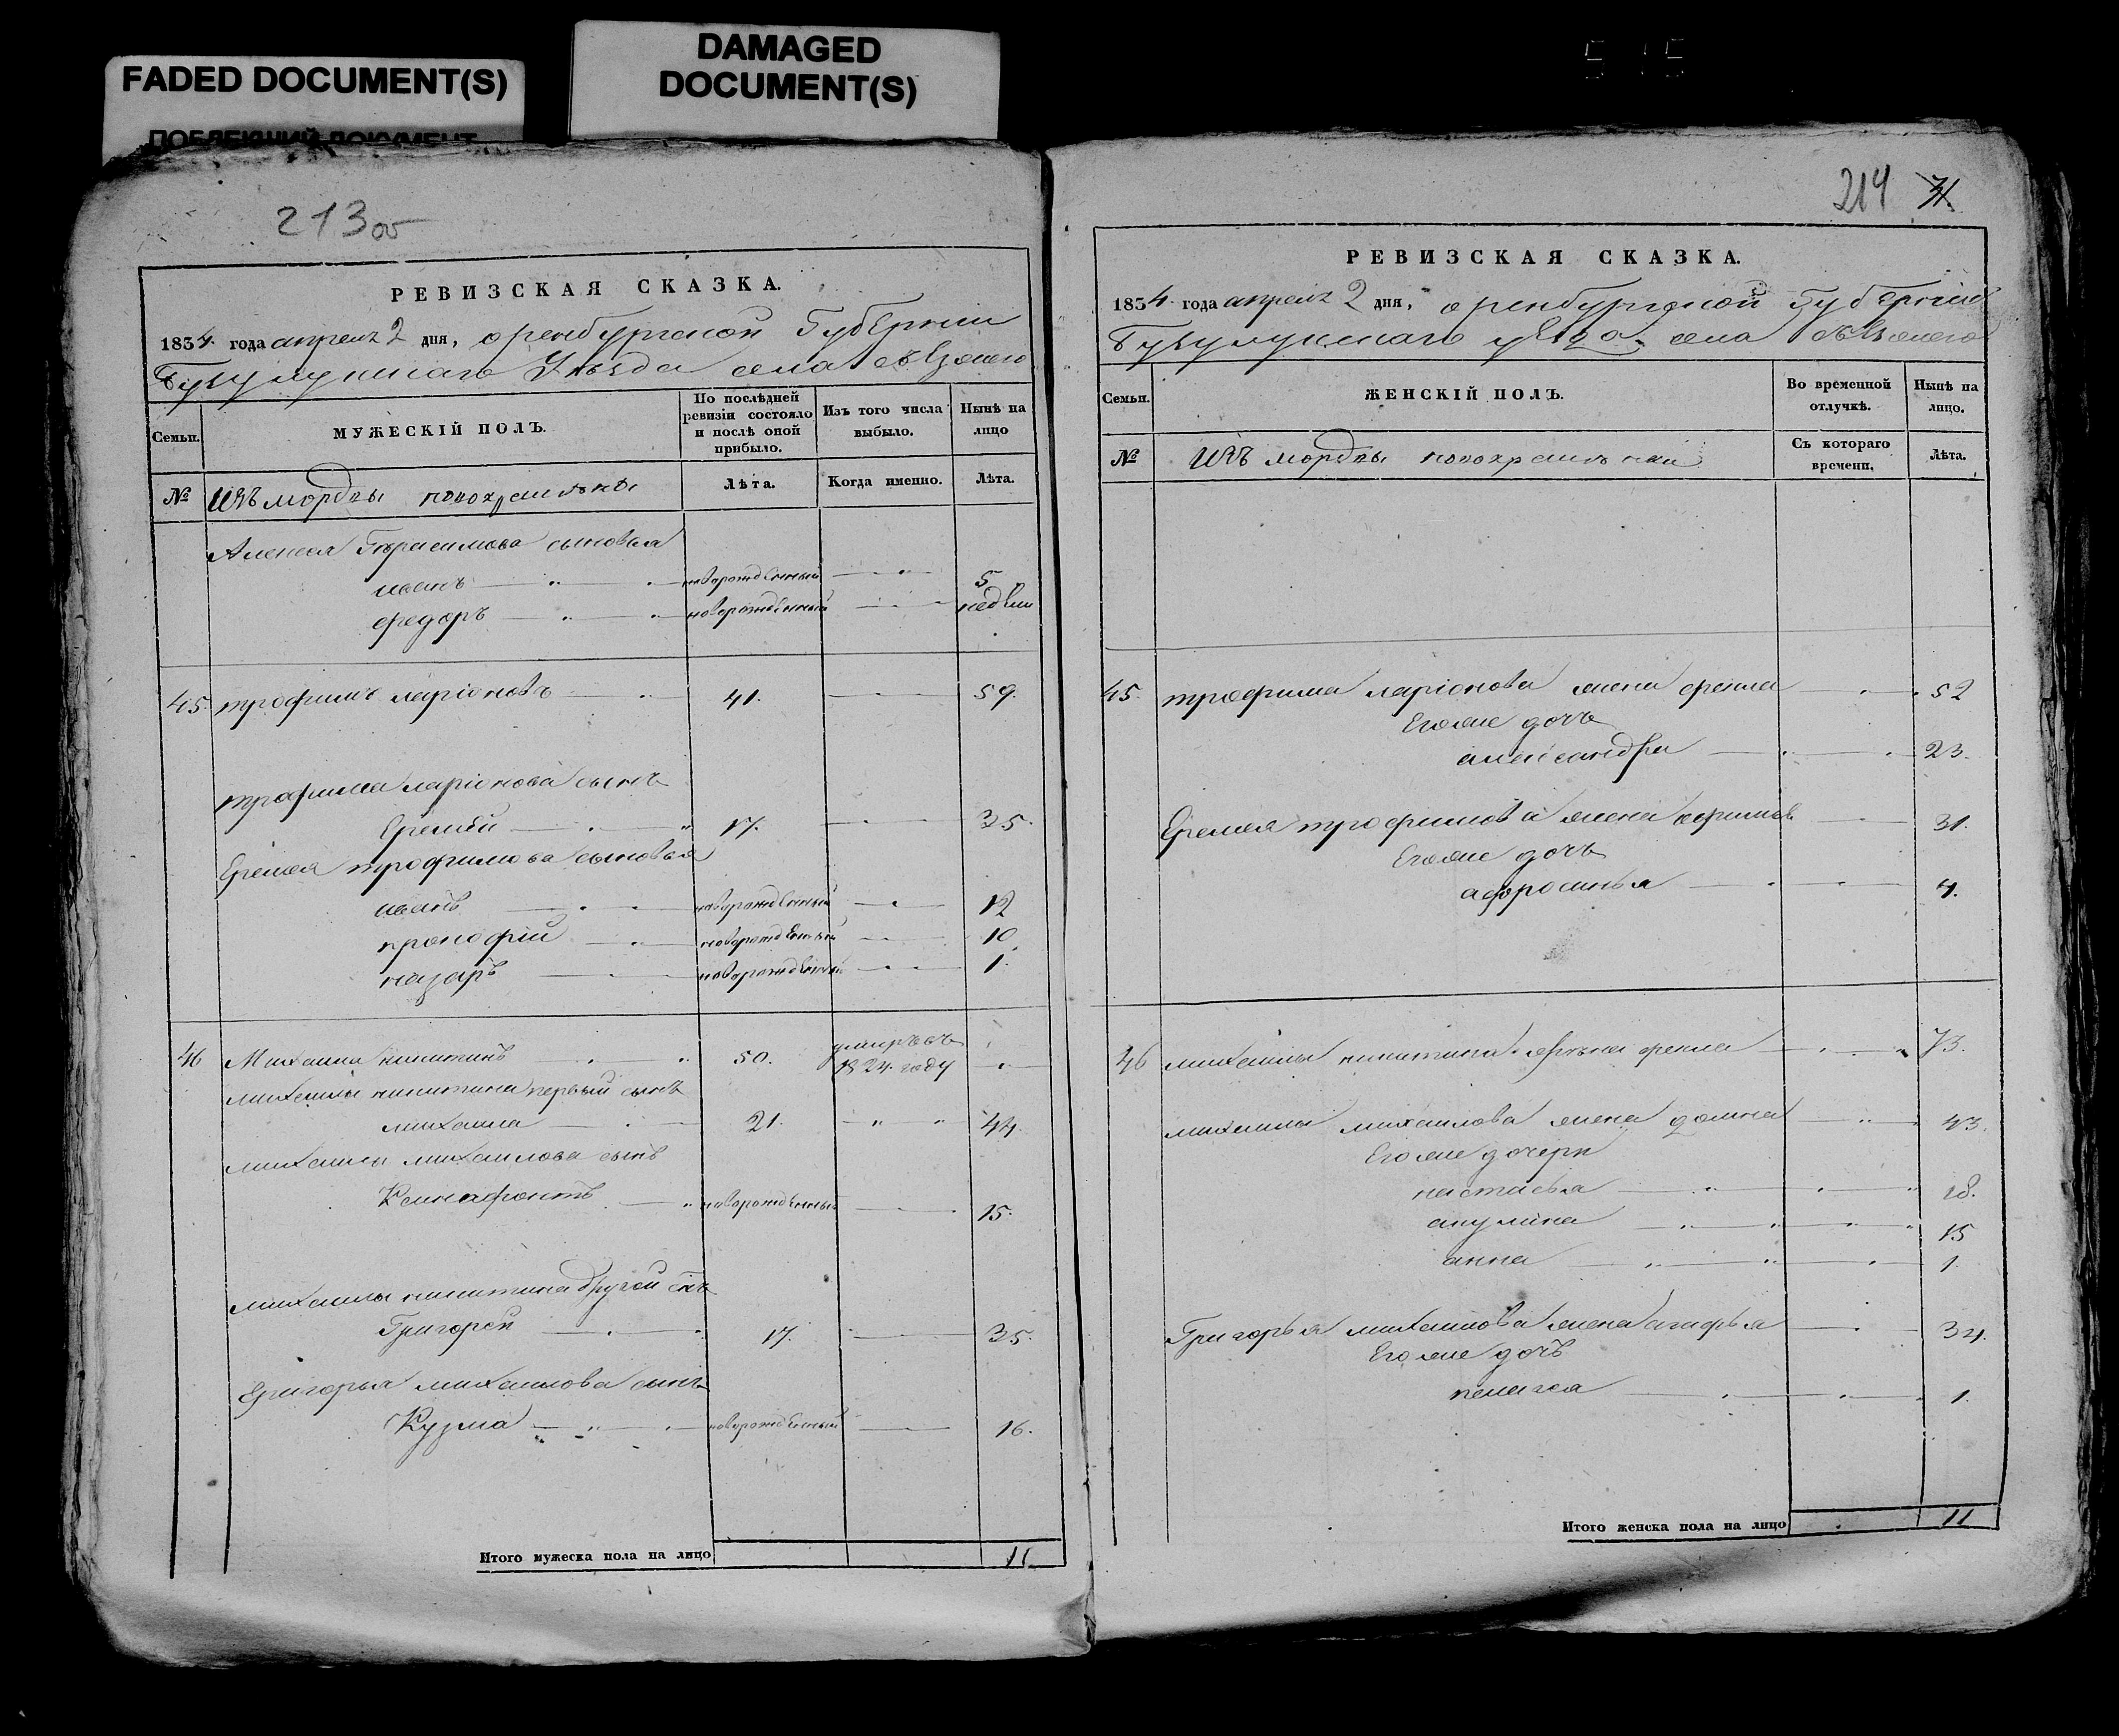 FADED DOCUMENT(S)
ПОБЛЕКШИЙ ДОКУМЕНТ
DAMAGED
DOCUMENT(S)
213 об
РЕВИЗСКАЯ СКАЗКА.
1834 года апреля 2 дня, оренбургской Губернии
Бузулукскаго Уезда села съезжего
Семьи.
МУЖЕСКІЙ ПОЛЪ.
По послѣдней ревизіи состояло и послѣ оной прибыло.
Изъ того числа выбыло.
Нынѣ на лицо
№ Изъ мордвы новокрещены
Лѣта.
Когда именно.
Лѣта.
Алексея Герасимова сыновья
иванъ новорожденный 5
федоръ новорожденный недели
45. трофимъ ларіоновъ 41. 59.
трофима ларіонова сынъ
Еремей 17. 35.
Еремея трофимова сыновья
иванъ новорожденный 12
прокофій новорожденный 10
назаръ новорожденный 1.
46 Михаила никитинъ 50. умиръ въ 1824. году
михаилы никитина первый сынъ
михаила 21. 44.
михаилы михаилова сынъ
Ксинафонтъ новорожденный 15.
михаилы никитина другой снъ
Григорей 17. 35.
Григорья михаилова сынъ
Кузма новорожденный 16.
Итого мужеска пола на лицо 11
214 31.
РЕВИЗСКАЯ СКАЗКА.
1834 года апреля 2 дня, оренбургской Губерніи
Бузулукскаго уезда села съезжего
Семьи.
ЖЕНСКІЙ ПОЛЪ.
Во временной отлучкѣ.
Нынѣ на лицо.
№ Изъ мордвы новокрещены
Съ котораго времени.
Лѣта.
45. трофима ларіонова жена фекла 52
Егоже дочь
александра 23.
Еремея трофимова жена 31.
Егоже дочь
афросинья 4.
46 михаилы никитина жена фекла 73.
михаилы михаилова жена домна 43.
Егоже дочери
настасья 18.
акулина 15
анна 1.
Григорья михаилова жена агафья 34.
Егоже дочь
пелагея 1.
Итого женска пола на лицо 11